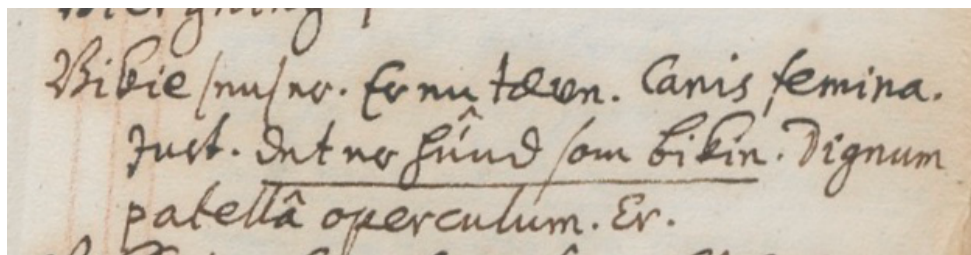 Bikie /en/er. Er en tæve. Canis femina.
Just. det er hûnd som bikie. Dignum
patellâ operculum. Er.